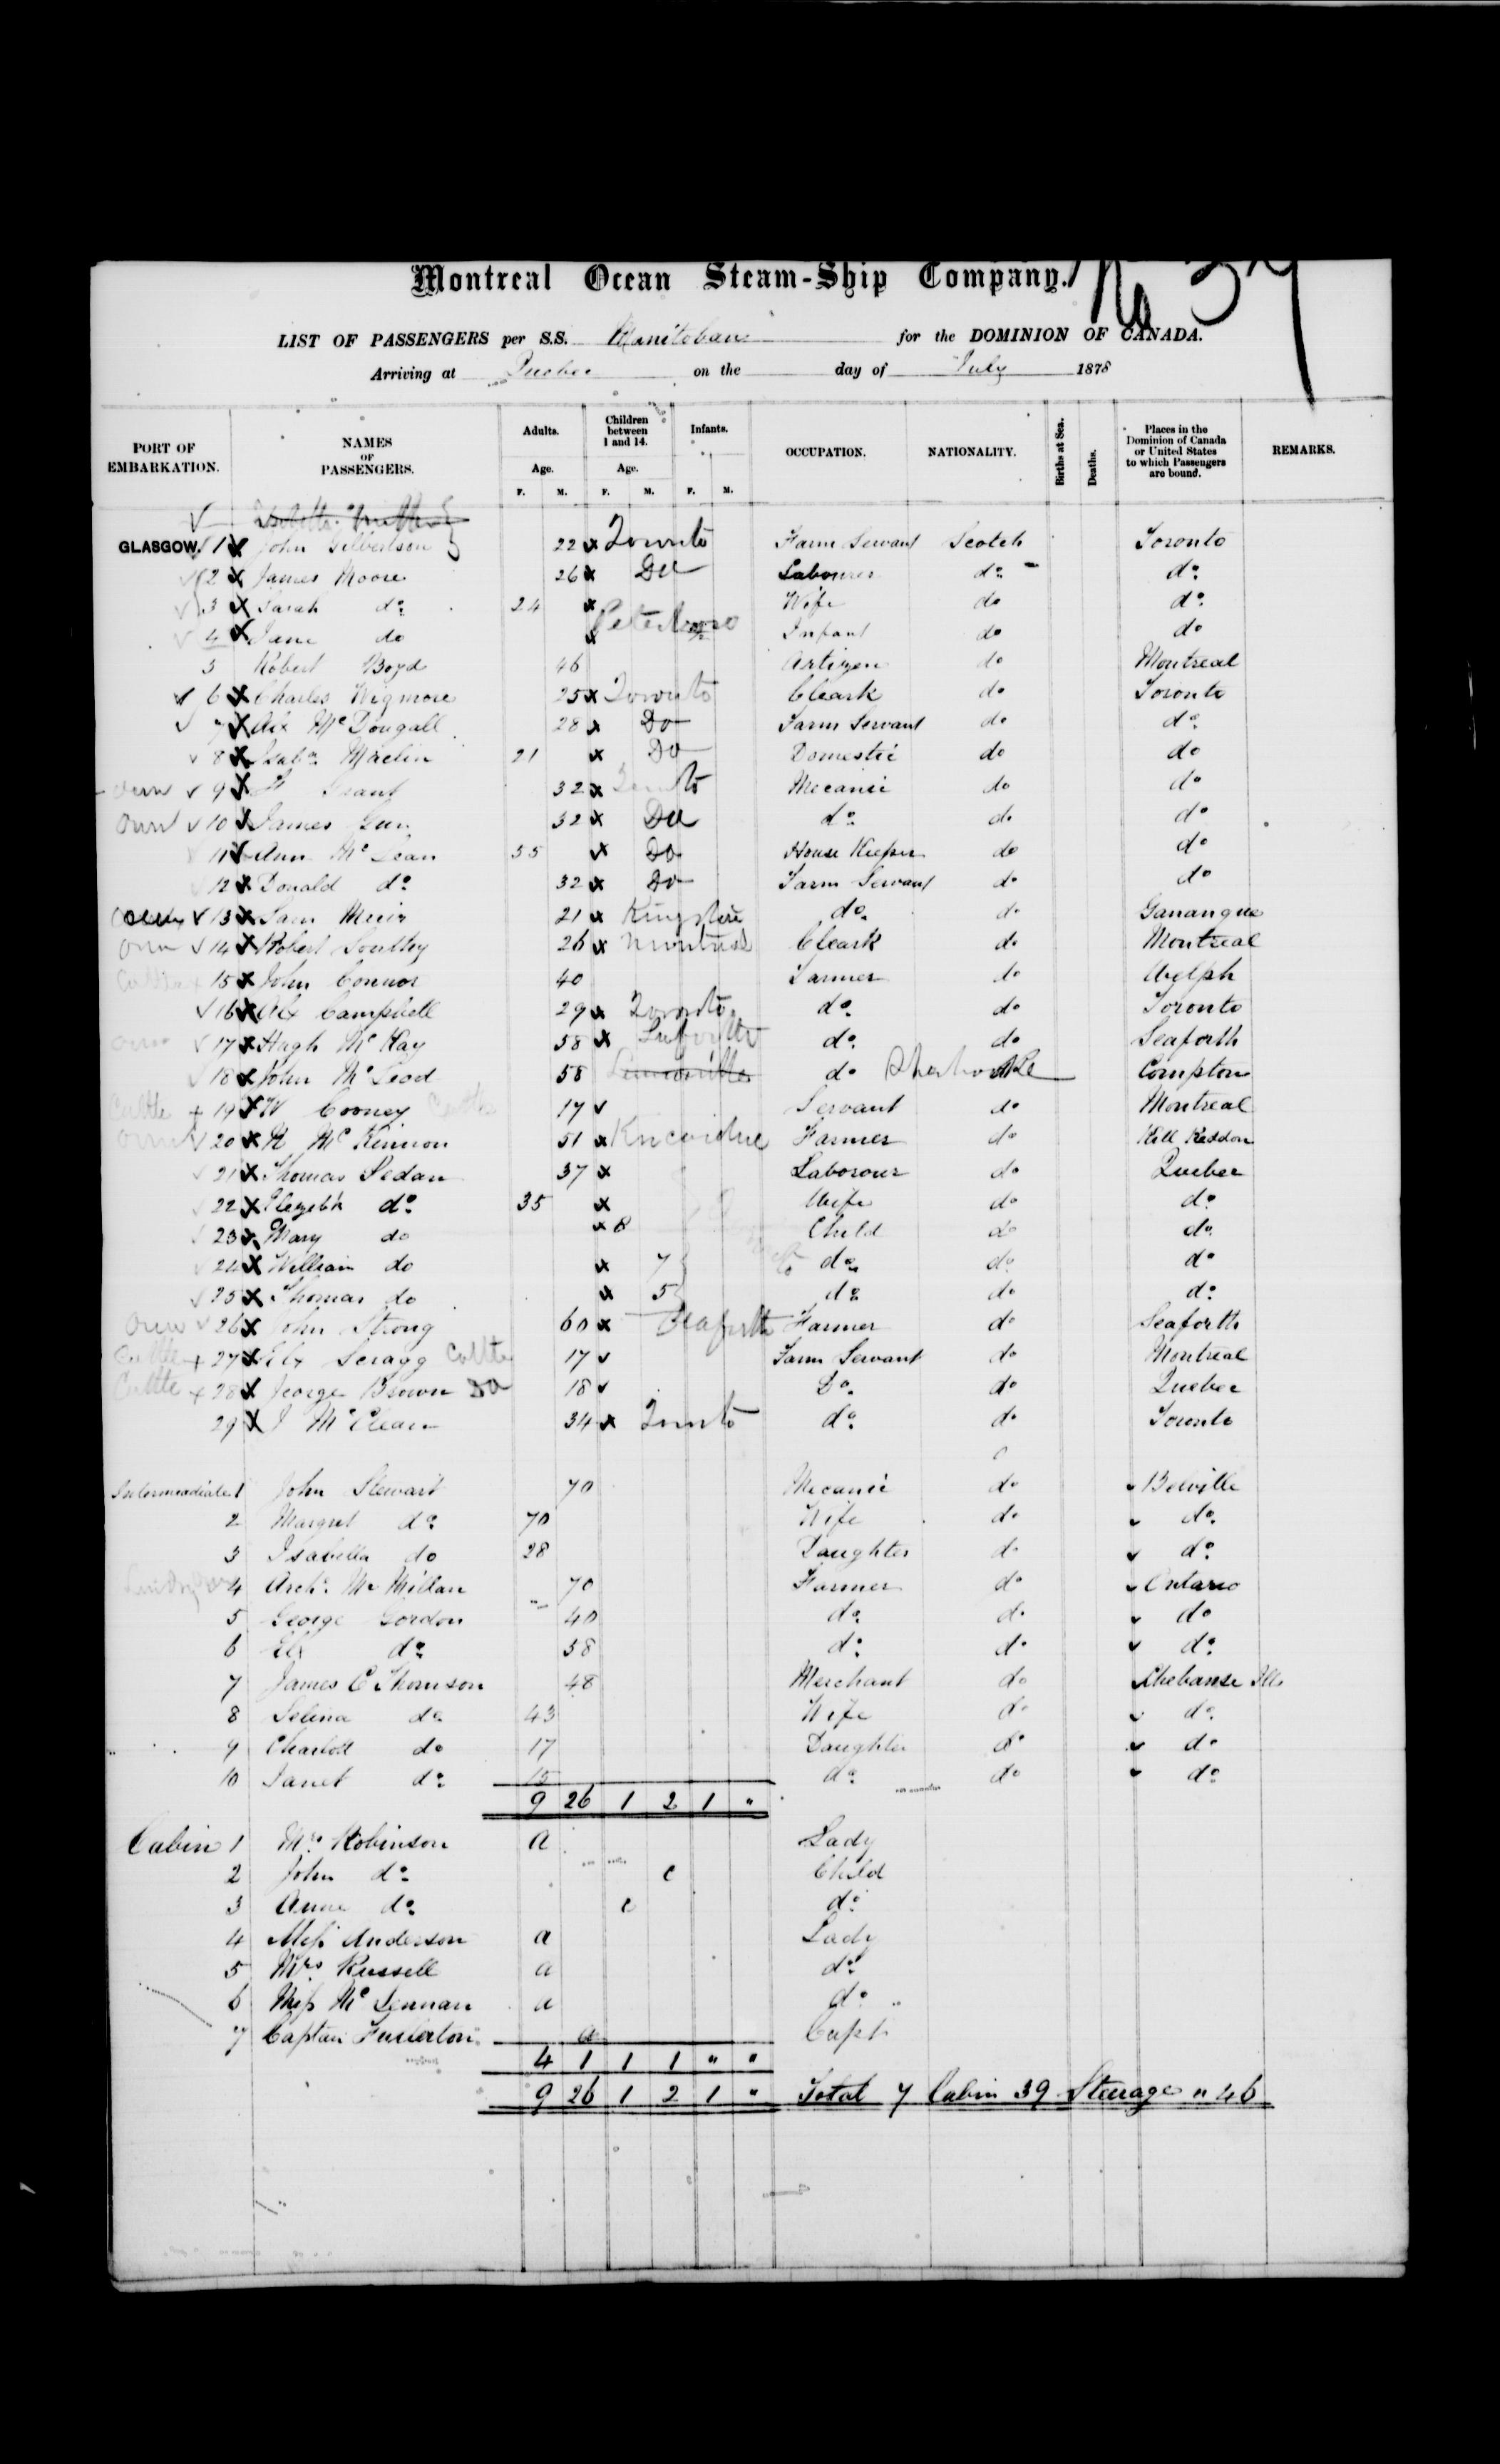 Montreal Ocean Steam-Ship Company.
No 39
LIST OF PASSENGERS per S.S. Manitoban for the DOMINION OF CANADA.
Arriving at Quebec on the day of July 1878
PORT OF EMBARKATION. NAMES OF PASSENGERS. Adults. Age. F. M. Children between 1 and 14. Age. F. M. Infants. F. M. OCCUPATION. NATIONALITY. Births at Sea. Deaths. Places in the Dominion of Canada or United States to which Passengers are bound. REMARKS.
GLASGOW. 1 John Gilbertson 22 Toronto Farm Servant Scotch Toronto
2 James Moore 26 Do Labourer do do
3 Sarah do 24 Wife do do
4 Jane do Peterboro Infant do do
5 Robert Boyd 46 Artizen do Montreal
6 Charles Wigmore 25 Toronto Cleark do Toronto
7 Alx McDougall 28 Do Farm Servant do do
8 Isaba 21 Do Domestic do do
9 Grant 32 Toronto Mecanic do do
Own 10 James Gun 32 Do do do do
11 Ann McLean 35 Do House Keeper do do
12 Donald do 32 Do Farm Servant do do
13 Sam Muir 21 do do Gananque
Own 14 Robert Southy 26 Montreal Cleark do Montreal
15 John Connor 40 Farmer do Guelph
16 Alx Campbell 29 Toronto do do Toronto
17 Hugh McKay 58 do do Seaforth
18 John McLeod 58 do do Compton
Cattle 19 W Cooney Cattle 17 Servant do Montreal
20 N McKinnon 51 Kincardine Farmer do
21 Thomas Sedan 37 Laborour do Quebec
22 Elezebh do 35 Wife do do
23 Mary do 8 Child do do
24 William do 7 do do do
25 Thomas do 5 do do do
Own 26 John Strong 60 Seaforth Farmer do Seaforth
Cattle 27 Alx Scragg Cattle 17 Farm Servant do Montreal
Cattle 28 George Brown Do 18 Do do Quebec
29 J McClean 34 Toronto do do Toronto
Intermeadiate 1 John Stewart 70 Mecanic do Belville
2 Margret do 70 Wife do do
3 Isabella do 28 Daughter do do
4 Archd McMillan 70 Farmer do Ontario
5 George Gordon 40 do do do
6 Alx do 58 do do do
7 James C Thomson 48 Merchant do Chebanse Ills
8 Selina do 43 Wife do do
9 Charlott do 17 Daughter do do
10 Janet do 15 do do do
9 26 1 2 1 "
Cabin 1 Mrs Robinson a Lady
2 John do c Child
3 Anne do c do
4 Miss Anderson a Lady
5 Mrs Russell a do
6 Miss McLennan a do
7 Captain Fullerton a Capt
4 1 1 1 " "
9 26 1 2 1 " Total 7 Cabin 39 Steerage " 46